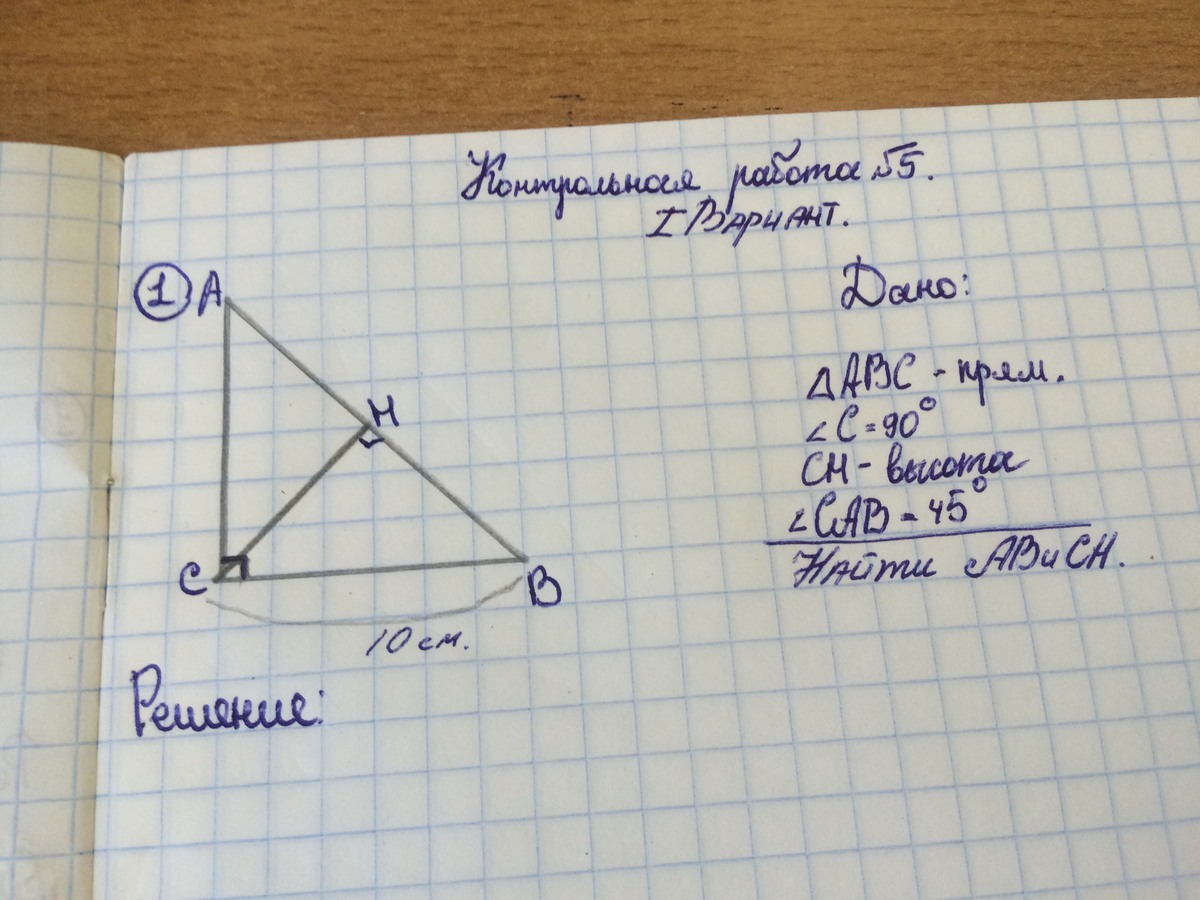 Контрольная работа №5.
I Вариант.
1 A
H
C
B
10 см.
Дано:
△ABC - прям.
∠C=90°
CH - высота
∠CAB = 45°
Найти AB и CH.
Решение: